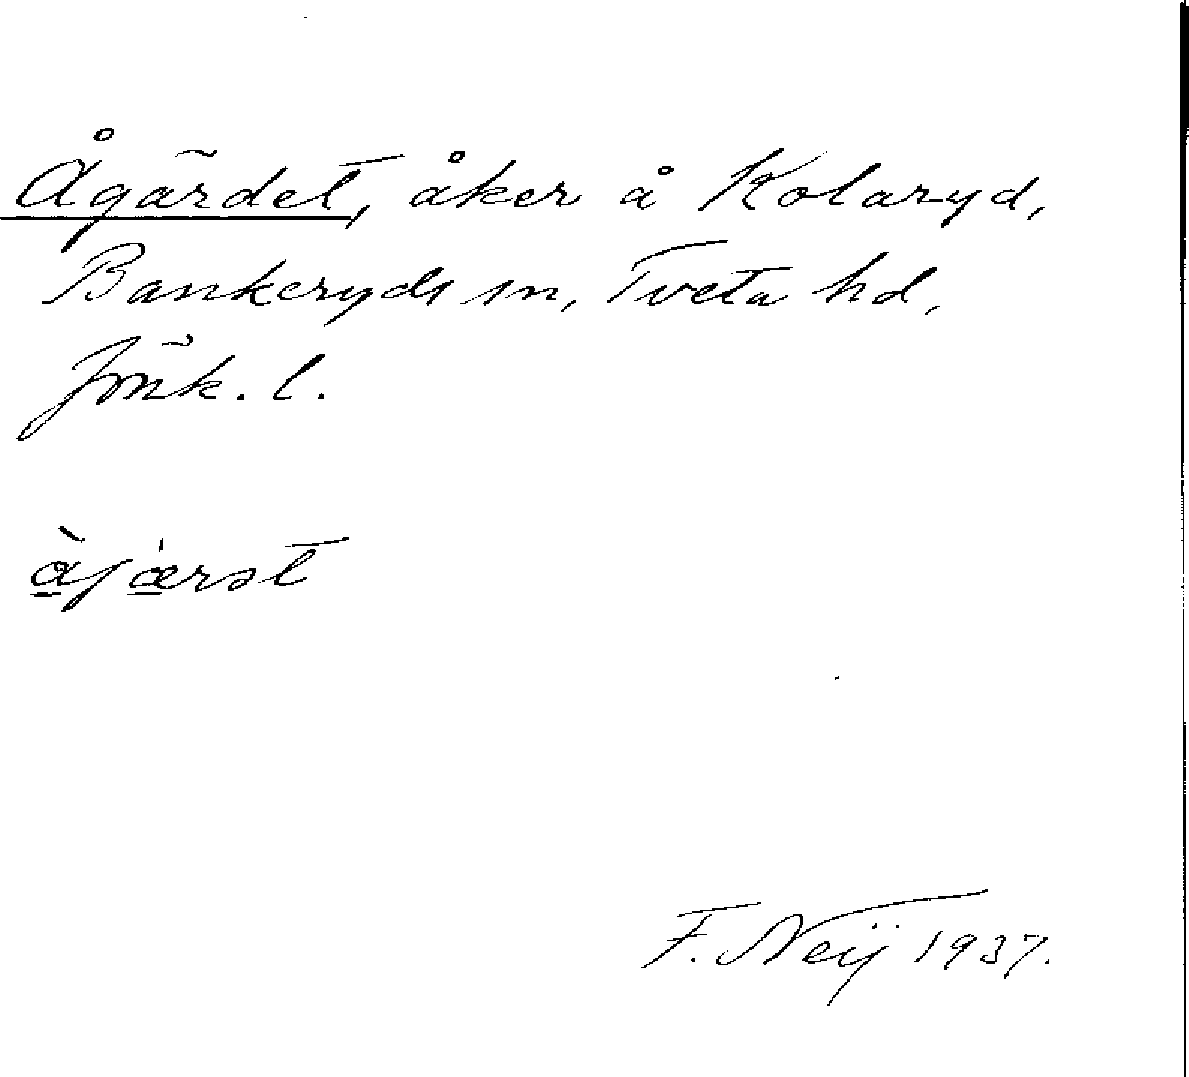 Ågärdet, åker å Kolaryd,
Bankeryds sn, Tveta hd,
Jönk. l.
à̠jæ̠̍rət
F. Neij 1937.